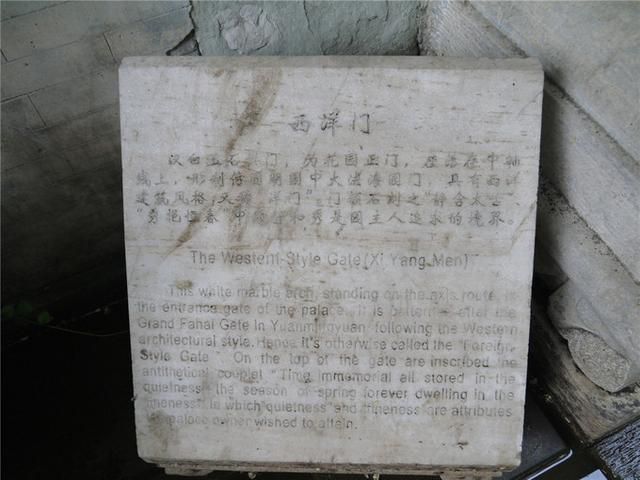 西洋门
汉白玉石拱门，为花园正门，座落在中轴
线上，形制仿圆明园中大法海园门，具有西洋
建筑风格，又称"洋门"。门额石刻之"静含太古"
"秀挹恒春"中的静和秀是园主人追求的境界。
The Western-Style Gate(Xi Yang Men)
This white marble arch, standing on the axis route, is
the entrance gate of the palace. It is patterned after the
Grand Fahai Gate in Yuanmingyuan following the Western
architectural style. Hence it's otherwise called the "Foreign
Style Gate". On the top of the gate are inscribed the
antithetical couplet "Time immemorial all stored in the
quietness the season of spring forever dwelling in the
fineness" in which"quietness"and"fineness"are attributes
palace owner wished to attain.